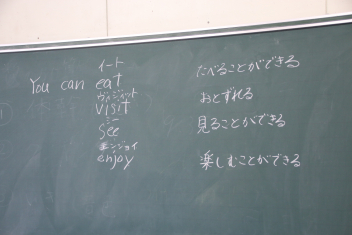 イート
You can eat たべることができる
ヴィジィット
visit おとずれる
シー
see 見ることができる
エンジョイ
enjoy 楽しむことができる